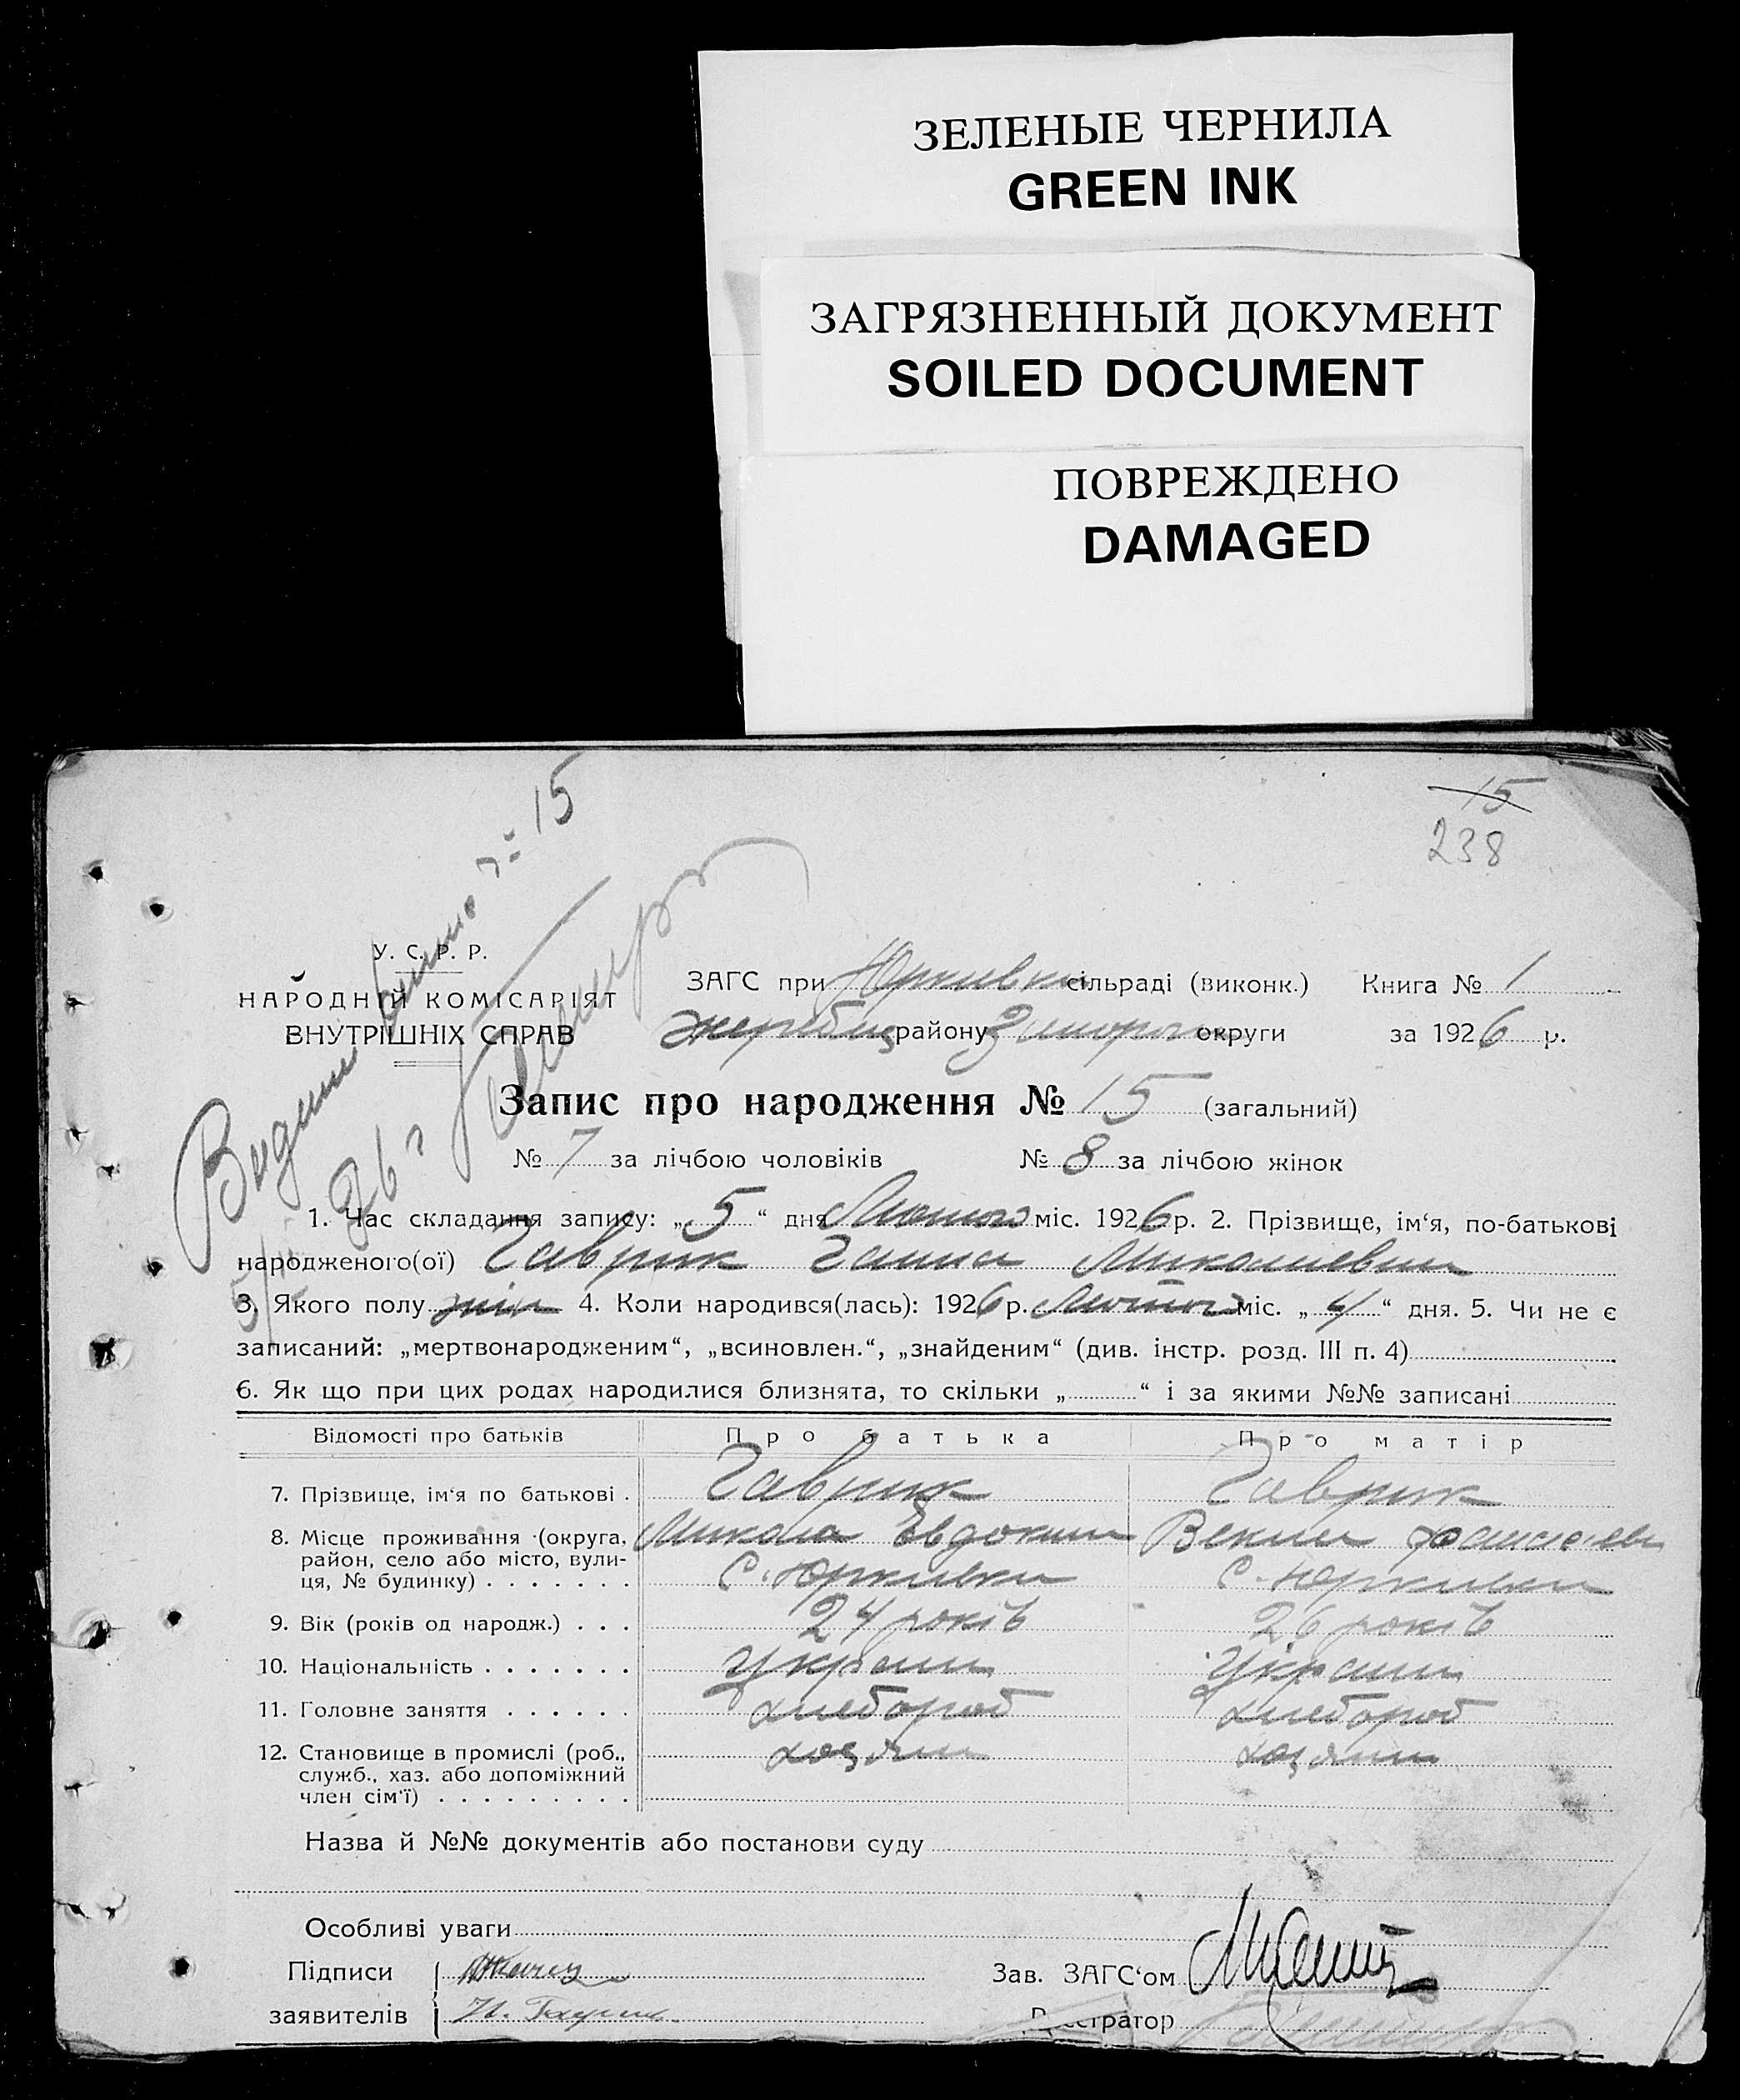 ЗЕЛЕНЫЕ ЧЕРНИЛА
GREEN INK
ЗАГРЯЗНЕННЫЙ ДОКУМЕНТ
SOILED DOCUMENT
ПОВРЕЖДЕНО
DAMAGED
15
238
15
У. С. Р. Р.
НАРОДНІЙ КОМІСАРІЯТ
ВНУТРІШНІХ СПРАВ
ЗАГС при Юркивка сільраді (виконк.) Книга № 1
Жеребец району Запорож округи за 1926 р.
Запис про народження № 15 (загальний)
№ 7 за лічбою чоловіків № 8 за лічбою жінок
1. Час складання запису: „5“ дня Лютого міс. 1926 р. 2. Прізвище, ім‘я, по-батькові
народженого(ої) Гаврик Ганна Миколаевна
3. Якого полу жін 4. Коли народився(лась): 1926 р. Лютого міс. „4“ дня. 5. Чи не є
записаний: „мертвонародженим“, „всиновлен.“, „знайденим“ (див. інстр. розд. III п. 4)
6. Як що при цих родах народилися близнята, то скільки „ “ і за якими №№ записані
Відомості про батьків Про батька Про матір
7. Прізвище, ім‘я по батькові . Гаврик Гаврик
8. Місце проживання (округа, Микола Евдоким
район, село або місто, вули-
ця, № будинку) . . . . . . . С. Юркивка С. Юркивка
9. Вік (років од народж.) . . . 24 років 26 років
10. Національність . . . . . . . Украин Украин
11. Головне заняття . . . . . . хлебороб хлебороб
12. Становище в промислі (роб., хозяин хозяин
служб., хаз. або допоміжний
член сім‘ї) . . . . . . . . .
Назва й №№ документів або постанови суду
Особливі уваги
Підписи
Зав. ЗАГС‘ом
заявителів
Реєстратор